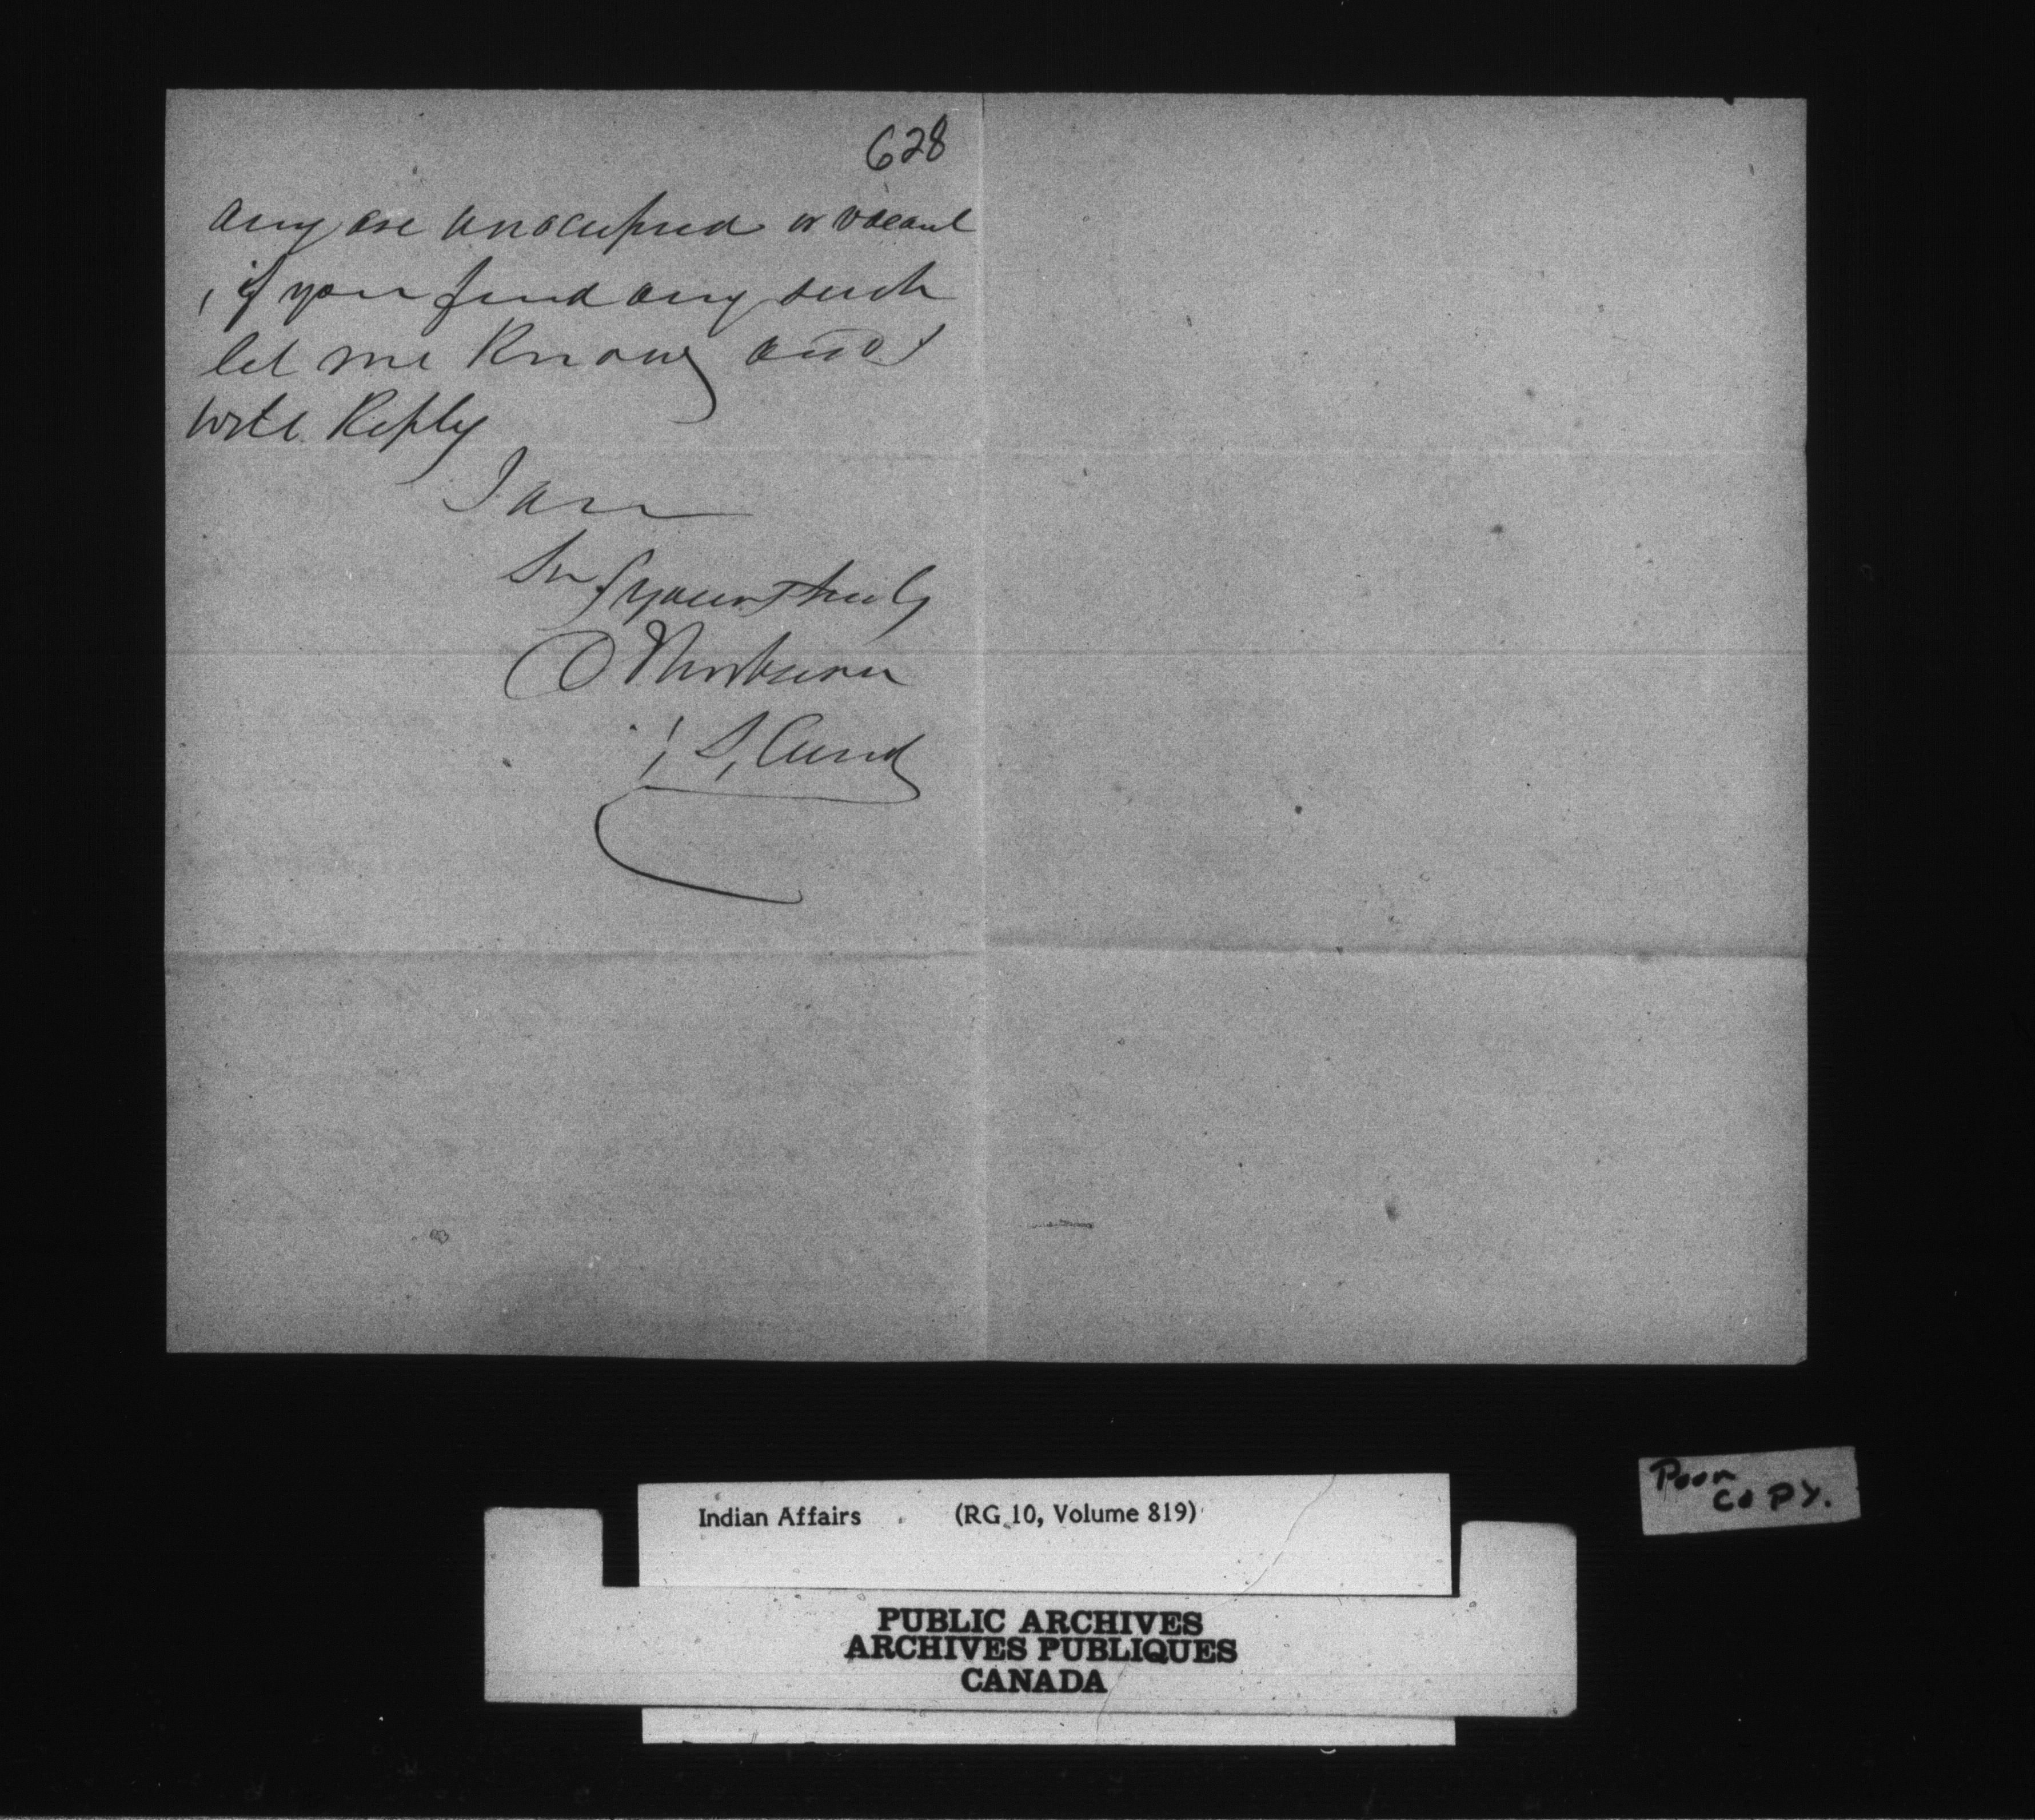 628
any are unoccupied or vacant
, if you find any such
let me know and I
will Reply
I am
Sir yours truly
PUBLIC ARCHIVES
ARCHIVES PUBLIQUES
CANADA
Indian Affairs (RG 10, Volume 819)
Poor
COPY.